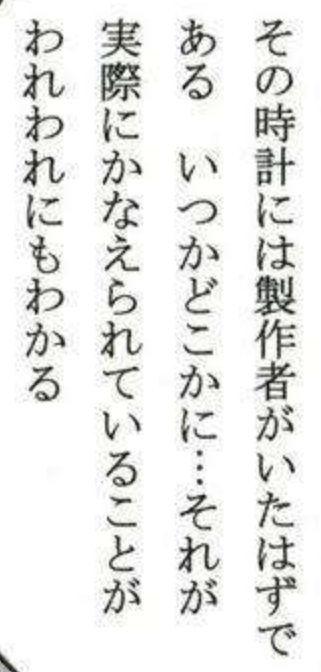 その時計には製作者がいたはずで
ある　いつかどこかに…それが
実際にかなえられていることが
われわれにもわかる